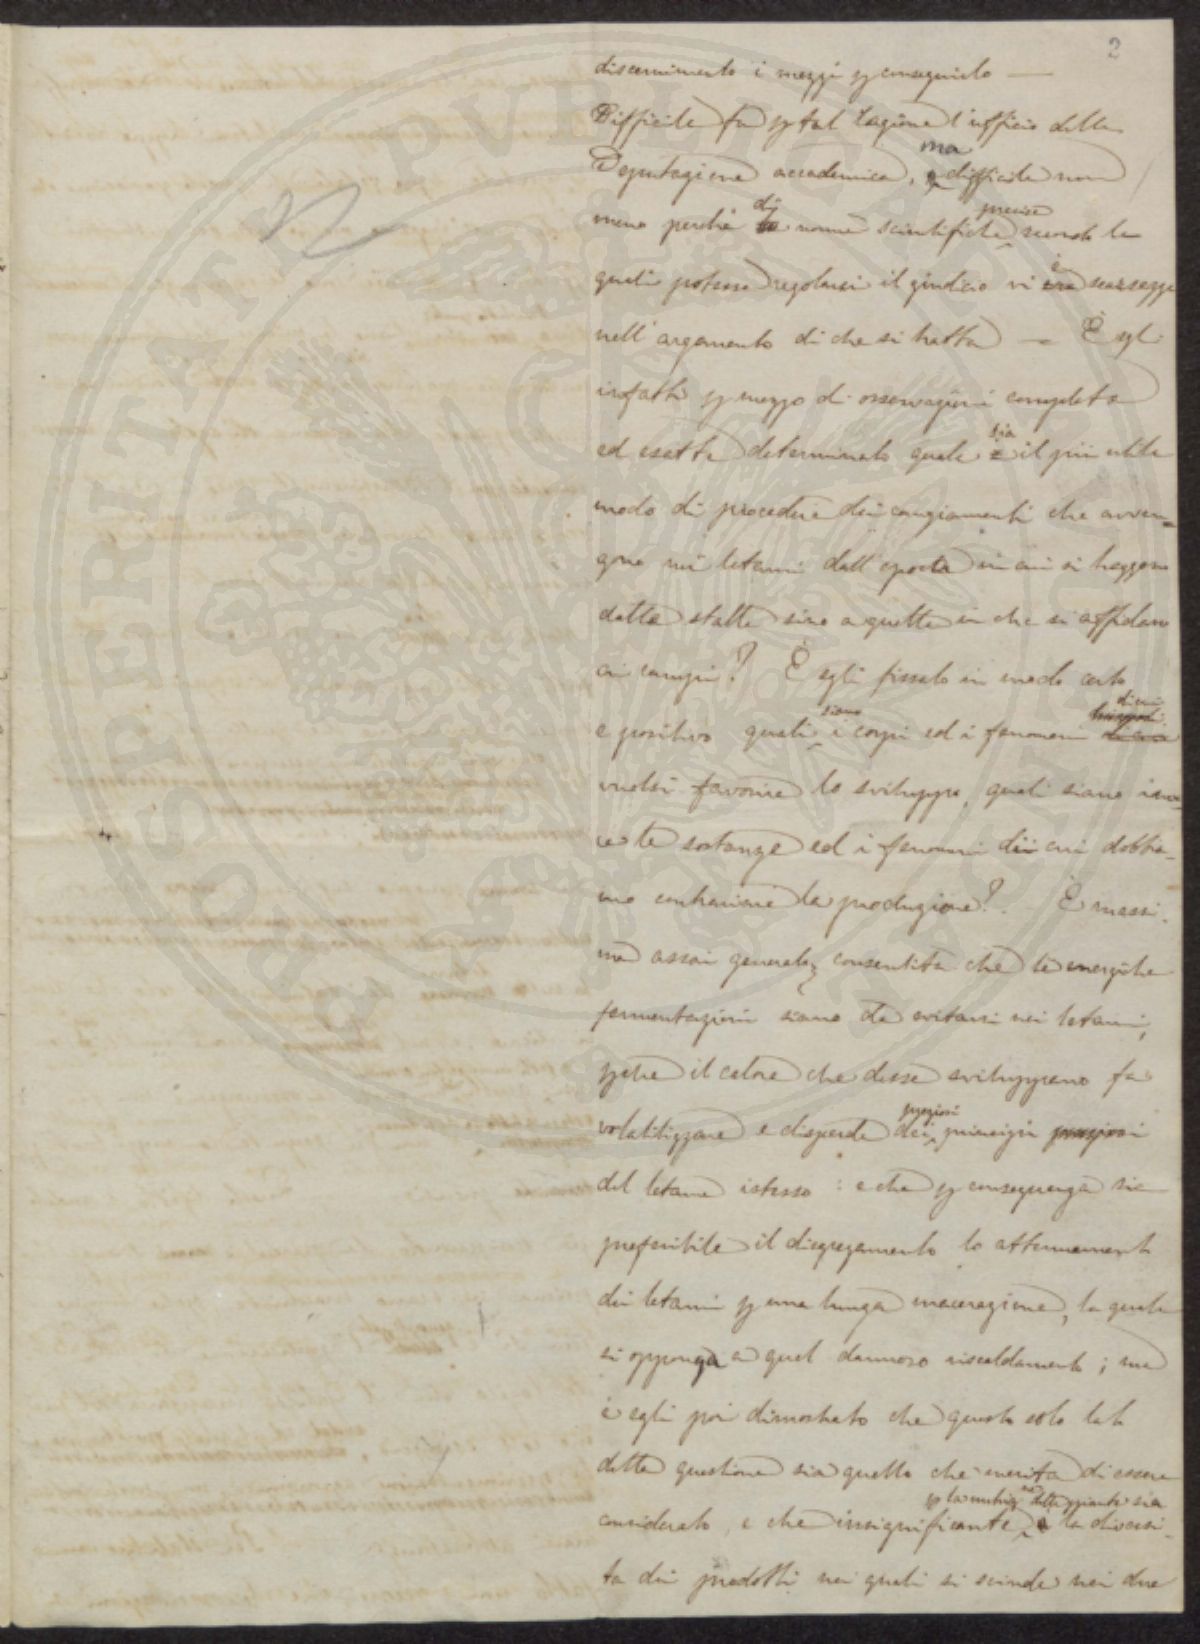 2
discernimento i mezzi p conseguirlo —
Difficile fu p tal ragione l'ufficio della
Deputazione accademica, ma difficile non
meno perchè di norme scientifiche precise secondo le
quali potesse regolarsi il giudizio vi è scarsezza
nell'argomento di che si tratta — È egli
infatti p mezzo di osservazioni complete
ed esatte determinato quale sia il più utile
modo di procedere dei cangiamenti che avven=
gono nei letami dall'epoca in cui si traggono
dalle stalle sino a quella in che si affidano
ai campi? È egli fissato in modo certo
e positivo quali siano i corpi ed i fenomeni di cui
vuolsi favorire lo sviluppo, quali siano inve=
ce le sostanze ed i fenomeni di cui dobbia-
mo contrariare la produzione? È massi-
ma assai generalm consentita che le energiche
fermentazioni siano da evitarsi nei letami,
pchè il calore che desse sviluppano fa
volatilizzare e disperde dei preziosi principii
del letame istesso: e che p conseguenza sia
preferibile il disgregamento lo attenuamento
dei letami p una lunga macerazione, la quale
si opponga a quel dannoso riscaldamento; ma
è egli poi dimostrato che questo solo lato
della questione sia quello che merita di essere
considerato, e che insignificante p la nutriz.ne delle piante sia la diversi-
tà dei prodotti nei quali si scinde nei due
PROSPERITATI PVBLICAE